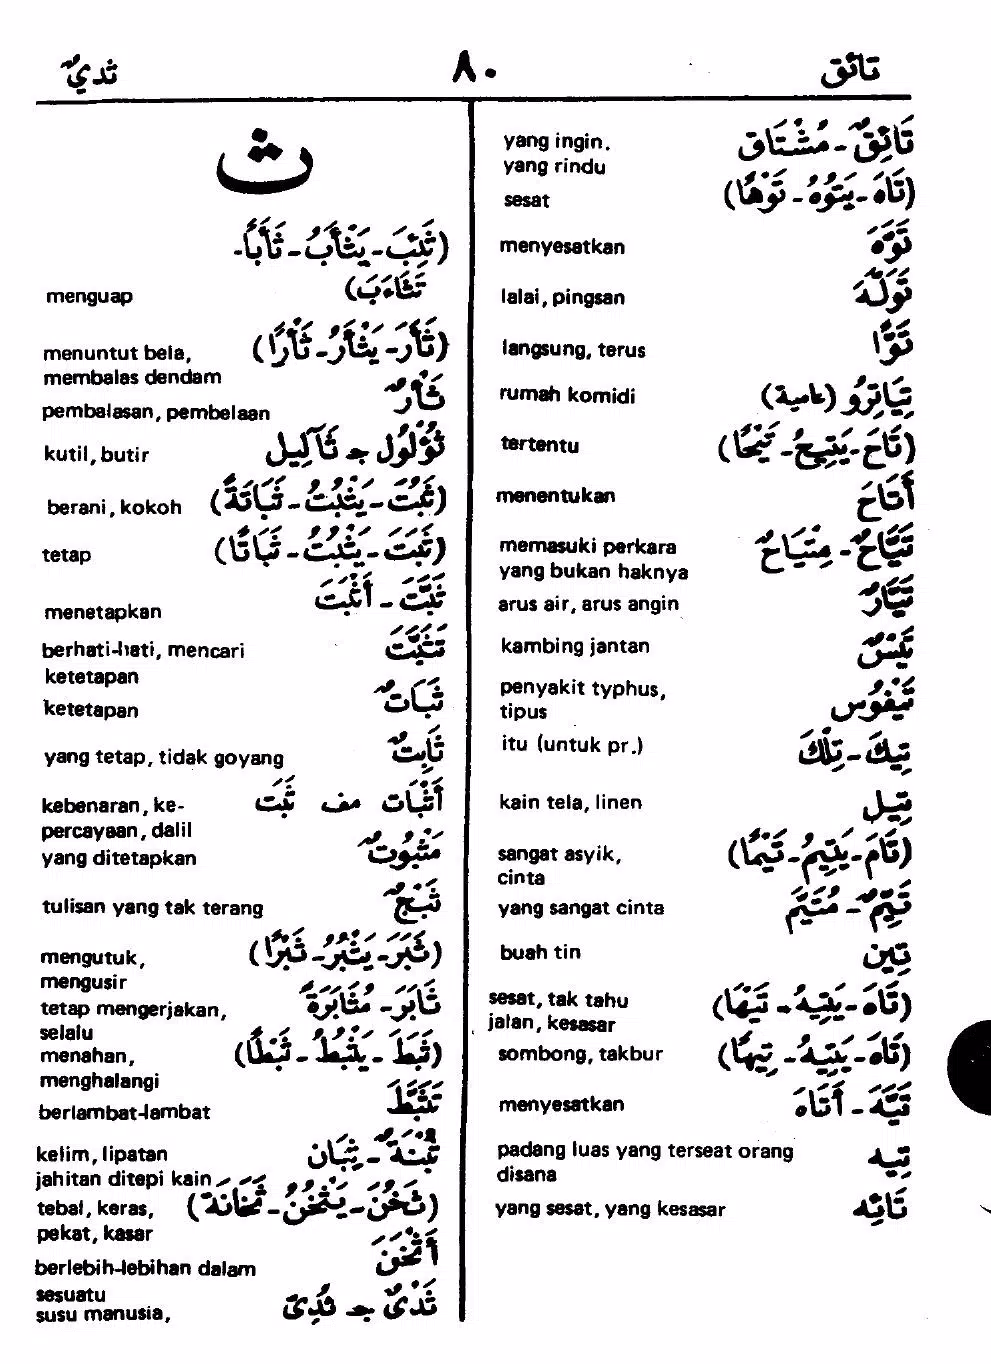 تائق ٨٠ ثديٌ
تَائِقٌ - مُشْتَاق yang ingin.
yang rindu
(تَاهَ - يَتُوْهُ - تَوْهًا) sesat
تَوَّهَ menyesatkan
تَوَلَّهَ lalai, pingsan
تَوًّا langsung, terus
تِيَاتِرُو (عامية) rumah komidi
(تَاحَ - يَتِيحُ - تَيْحًا) tertentu
أَتَاحَ menentukan
تَيَّاحٌ - مِتْيَاحٌ memasuki perkara
yang bukan haknya
تَيَّارٌ arus air, arus angin
تَيْسٌ kambing jantan
تَيْفُوْس penyakit typhus,
tipus
تِيكَ - تِلْكَ itu (untuk pr.)
تِيل kain tela, linen
(تَامَ - يَتِيْمُ - تَيْمًا) sangat asyik,
cinta
تَيِّمٌ - مُتَيَّم yang sangat cinta
تِين buah tin
(تَاهَ - يَتِيهُ - تَيْهًا) sesat, tak tahu
jalan, kesasar
(تَاهَ - يَتِيْهُ - تِيهًا) sombong, takbur
تَيَّهَ - أَتَاهَ menyesatkan
تِيه padang luas yang terseat orang
disana
تَائِه yang sesat, yang kesasar
ث
(ثَئِبَ - يَثْأَبُ - ثَأَبًا -
تَثَاءَبَ) menguap
(ثَأَرَ - يَثْأَرُ - ثَأْرًا) menuntut bela,
membalas dendam
ثَأْرٌ pembalasan, pembelaan
ثُؤْلُوْل جـ ثَآلِيل kutil, butir
(ثَبُتَ - يَثْبُتُ - ثَبَاتَةً) berani, kokoh
(ثَبَتَ - يَثْبُتُ - ثَبَاتًا) tetap
ثَبَّتَ - أَثْبَتَ menetapkan
تَثَبَّتَ berhati-hati, mencari
ketetapan
ثَبَاتٌ ketetapan
ثَابِتٌ yang tetap, tidak goyang
أَثْبَات مف ثَبَت kebenaran, ke-
percayaan, dalil
مَثْبُوتٌ yang ditetapkan
ثَبَجٌ tulisan yang tak terang
(ثَبَرَ - يَثْبُرُ - ثَبْرًا) mengutuk,
mengusir
ثَابَرَ - مُثَابَرَةً tetap mengerjakan,
selalu
(ثَبَطَ - يَثْبُطُ - ثَبْطًا) menahan,
menghalangi
تَثَبَّطَ berlambat-lambat
ثُبْنَةٌ - ثِبَان kelim, lipatan
jahitan ditepi kain
(ثَخُنَ - يَثْخُنُ - ثَخَانَةً) tebal, keras,
pekat, kasar
أَثْخَنَ berlebih-lebihan dalam
sesuatu
ثَدْيٌ جـ ثُدِيّ susu manusia,